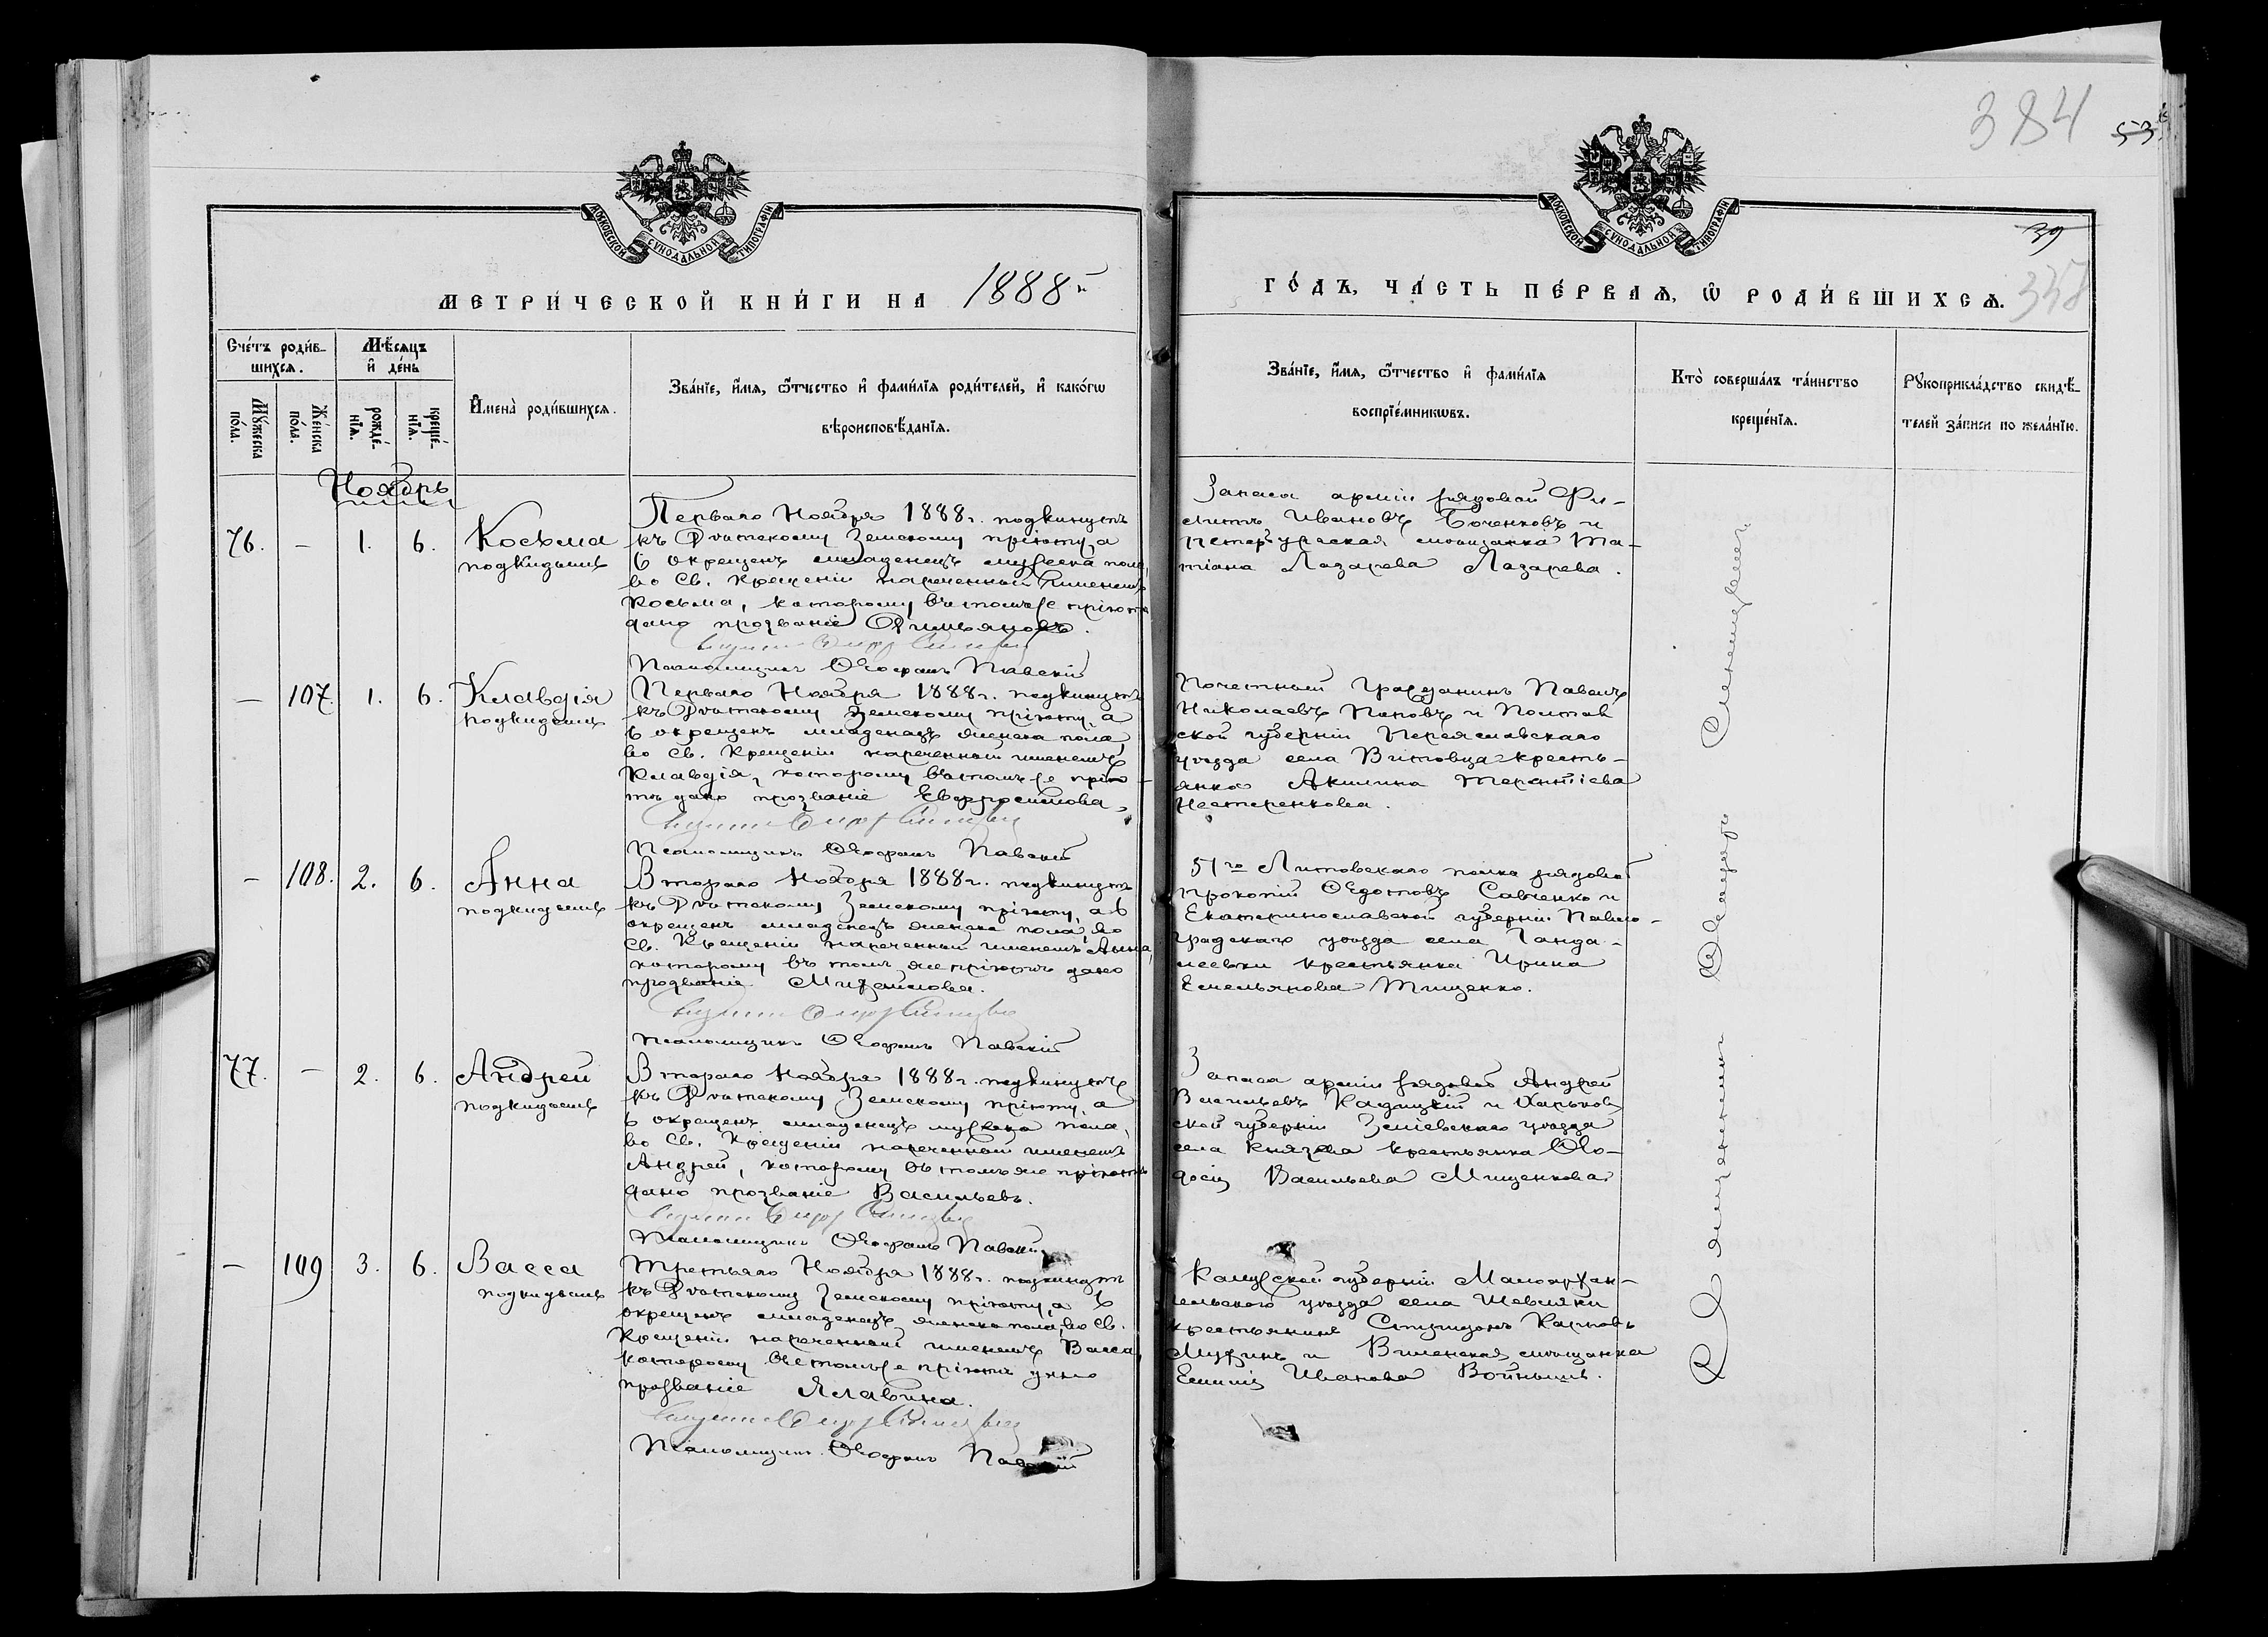 384
53
39
338
МОСКОВСКОЙ СУНОДАЛЬНОЙ ТИПОГРАФІИ
МОСКОВСКОЙ СУНОДАЛЬНОЙ ТИПОГРАФІИ
МЕТРИ́ЧЕСКОЙ КНИ́ГИ НА 1888й
ГО́ДЪ, ЧА́СТЬ ПЕ́РВАѦ, Ѡ҆ РОДИ́ВШИХСѦ.
Сче́тъ роди́в-
шихсѧ.
Мꙋ́жеска по́ла.
Же́нска по́ла.
Мѣ́сѧцъ
и҆ де́нь
рожде́-нїѧ.
креще́-нїѧ.
И҆мена̀ роди́вшихсѧ.
Зва́нїе, и҆́мѧ, ѻ҆́тчество и҆ фами́лїѧ роди́телей, и҆ како́гѡ
вѣроисповѣ́данїѧ.
Зва́нїе, и҆́мѧ, ѻ҆́тчество и҆ фами́лїѧ
воспрїе́мникѡвъ.
Кто̀ соверша́лъ та́инство
креще́нїѧ.
Рꙋкоприкла́дство свидѣ́-
телей за́писи по жела́нїю.
Ноябрь
76. – 1. 6. Косьма
подкидышъ
Перваго Ноября 1888г. подкинутъ
къ Земскому пріюту, а
6 окрещенъ младенецъ мужеска пола,
во Св. Крещеніи нареченный именемъ
Косьма, которому въ томъ же пріютѣ
дано прозваніе
Псаломщикъ Ѳеофанъ Павскій
Запаса арміи рядовой Фи-
липъ Ивановъ Боченковъ и
Петербургская мѣщанка Та-
тіана Лазарева Лазарева.
– 107. 1. 6. Клавдія
подкидышъ
Перваго Ноября 1888г. подкинутъ
къ Земскому пріюту, а
6 окрещенъ младенецъ женска пола,
во Св. Крещеніи нареченный именемъ
Клавдія, которому въ томъ же прію-
тѣ дано прозваніе Евфросимова.
Псаломщикъ Ѳеофанъ Павскій
Почетный Гражданинъ Павелъ
Николаевъ Поповъ и Полтав
ской губерніи Переяславскаго
уѣзда села Витовца кресть-
янка Акилина Терентіева
Нестеренкова.
– 108. 2. 6. Анна
подкидышъ
Втораго Ноября 1888г. подкинутъ
къ Земскому пріюту, а 6
окрещенъ младенецъ женска пола, во
Св. Крещеніи нареченный именемъ Анна,
которому въ томъ же пріютѣ дано
прозваніе Михаилова.
Псаломщикъ Ѳеофанъ Павскій
51го Литовскаго полка рядовой
Прокопій Ѳедотовъ Савченко и
Екатеринославской губерніи Павло-
градскаго уѣзда села
крестьянка Ирина
Емельянова Тищенко.
77. – 2. 6. Андрей
подкидышъ
Втораго Ноября 1888г. подкинутъ
къ Земскому пріюту, а
6 окрещенъ младенецъ мужеска пола,
во Св. Крещеніи нареченный именемъ
Андрей, которому въ томъ же пріютѣ
дано прозваніе Васильевъ.
Псаломщикъ Ѳеофанъ Павскій
Запаса арміи рядовой Андрей
Васильевъ и Харьков
ской губерніи Зміевскаго уѣзда
села Князева крестьянка Ѳео-
досія Васильева Мищенкова
– 109 3. 6. Васса
подкидышъ
Третьяго Ноября 1888г. подкинутъ
къ Земскому пріюту, а 6
окрещенъ младенецъ женска пола, во Св.
Крещеніи нареченный именемъ Васса,
которому въ томъ же пріютѣ дано
прозваніе
Псаломщикъ Ѳеофанъ Павскій
Калужской губерніи Малоархан-
гельскаго уѣзда села
крестьянинъ Спиридонъ Карповъ
и Виленская мѣщанка
Емилія Иванова
Священникъ Ѳеодоръ